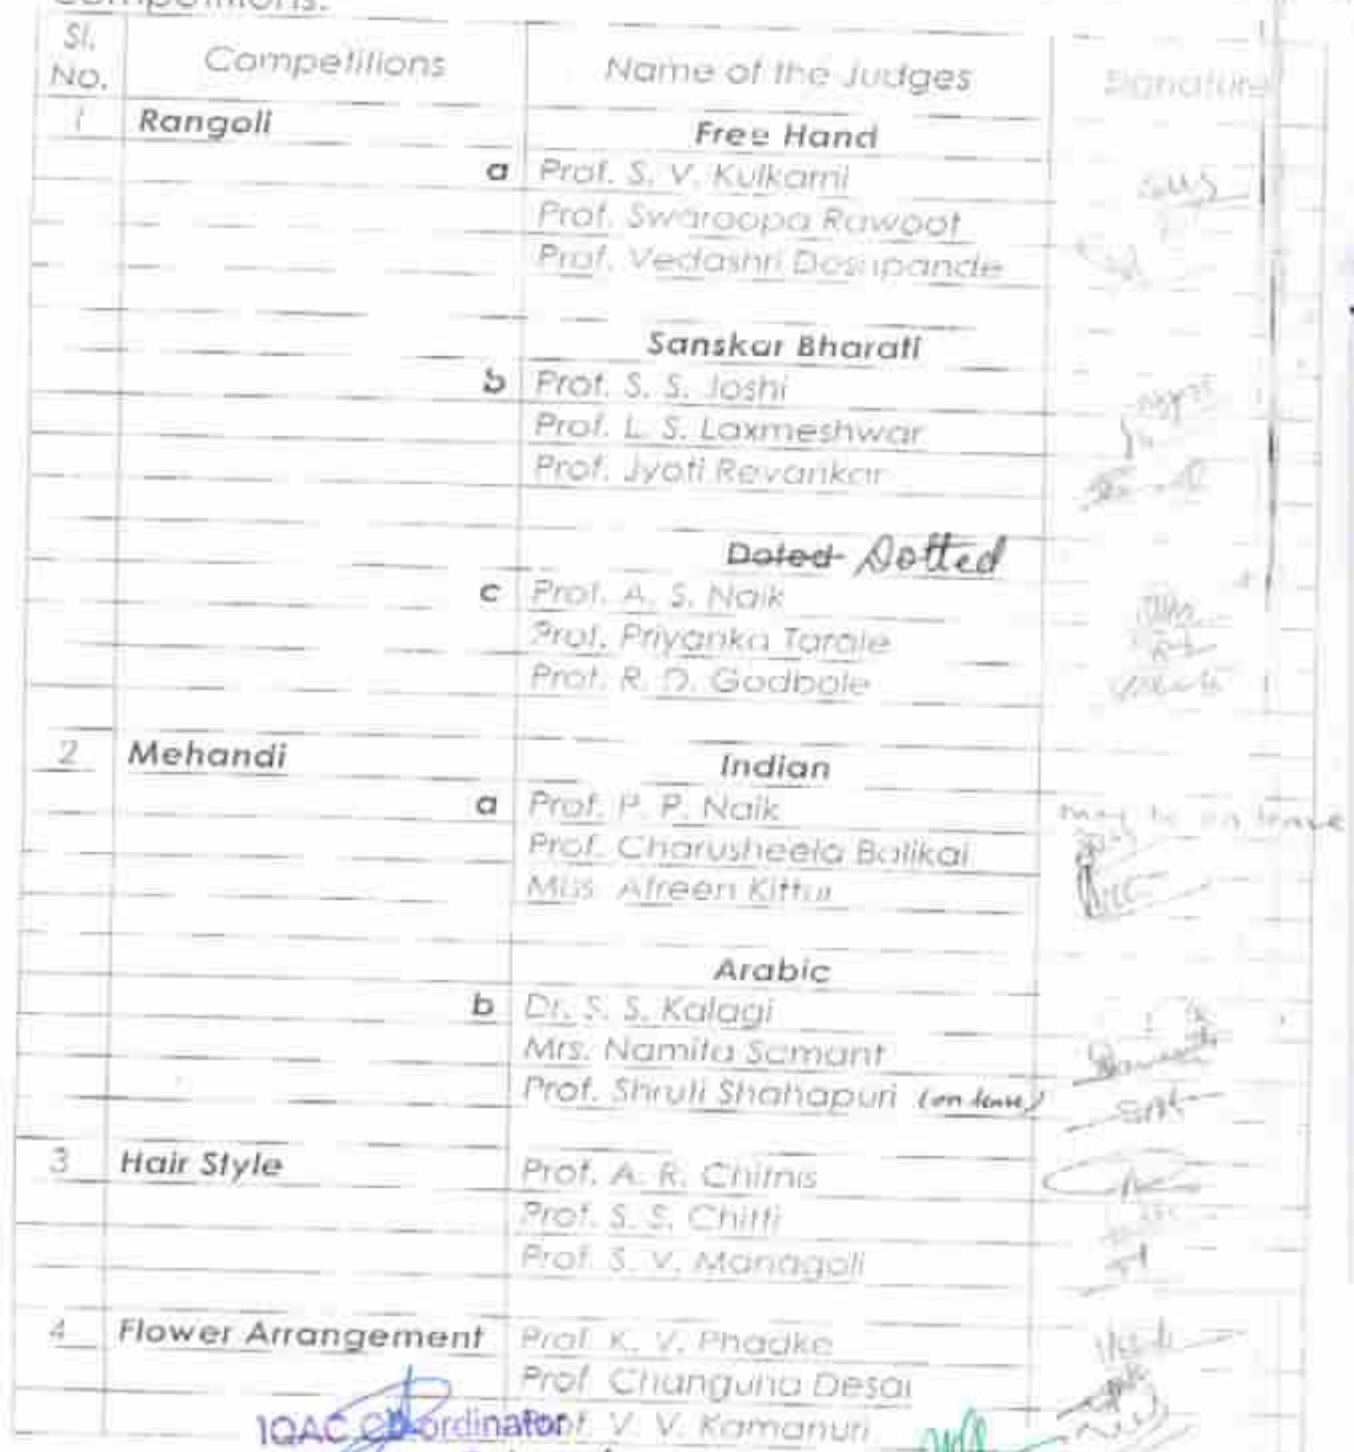 Competitions.
Sl. No. Competitions Name of the Judges Signature
1 Rangoli Free Hand
a Prof. S. V. Kulkarni
Prof. Swaroopa Rawoot
Prof. Vedashri Deshpande
Sanskar Bharati
b Prof. S. S. Joshi
Prof. L. S. Laxmeshwar
Prof. Jyoti Revankar
Doted Dotted
c Prof. A. S. Naik
Prof. Priyanka Tarale
Prof. R. D. Godbole
2 Mehandi Indian
a Prof. P. P. Naik may be on leave
Prof. Charusheela Balikai
Miss. Afreen Kittur
Arabic
b Dr. S. S. Kalagi
Mrs. Namita Samant
Prof. Shruti Shahapuri (on leave)
3 Hair Style Prof. A. R. Chitnis
Prof. S. S. Chitti
Prof. S. V. Managoli
4 Flower Arrangement Prof. K. V. Phadke
Prof. Changuna Desai
IQAC Co-ordinator V. V. Kamanuri